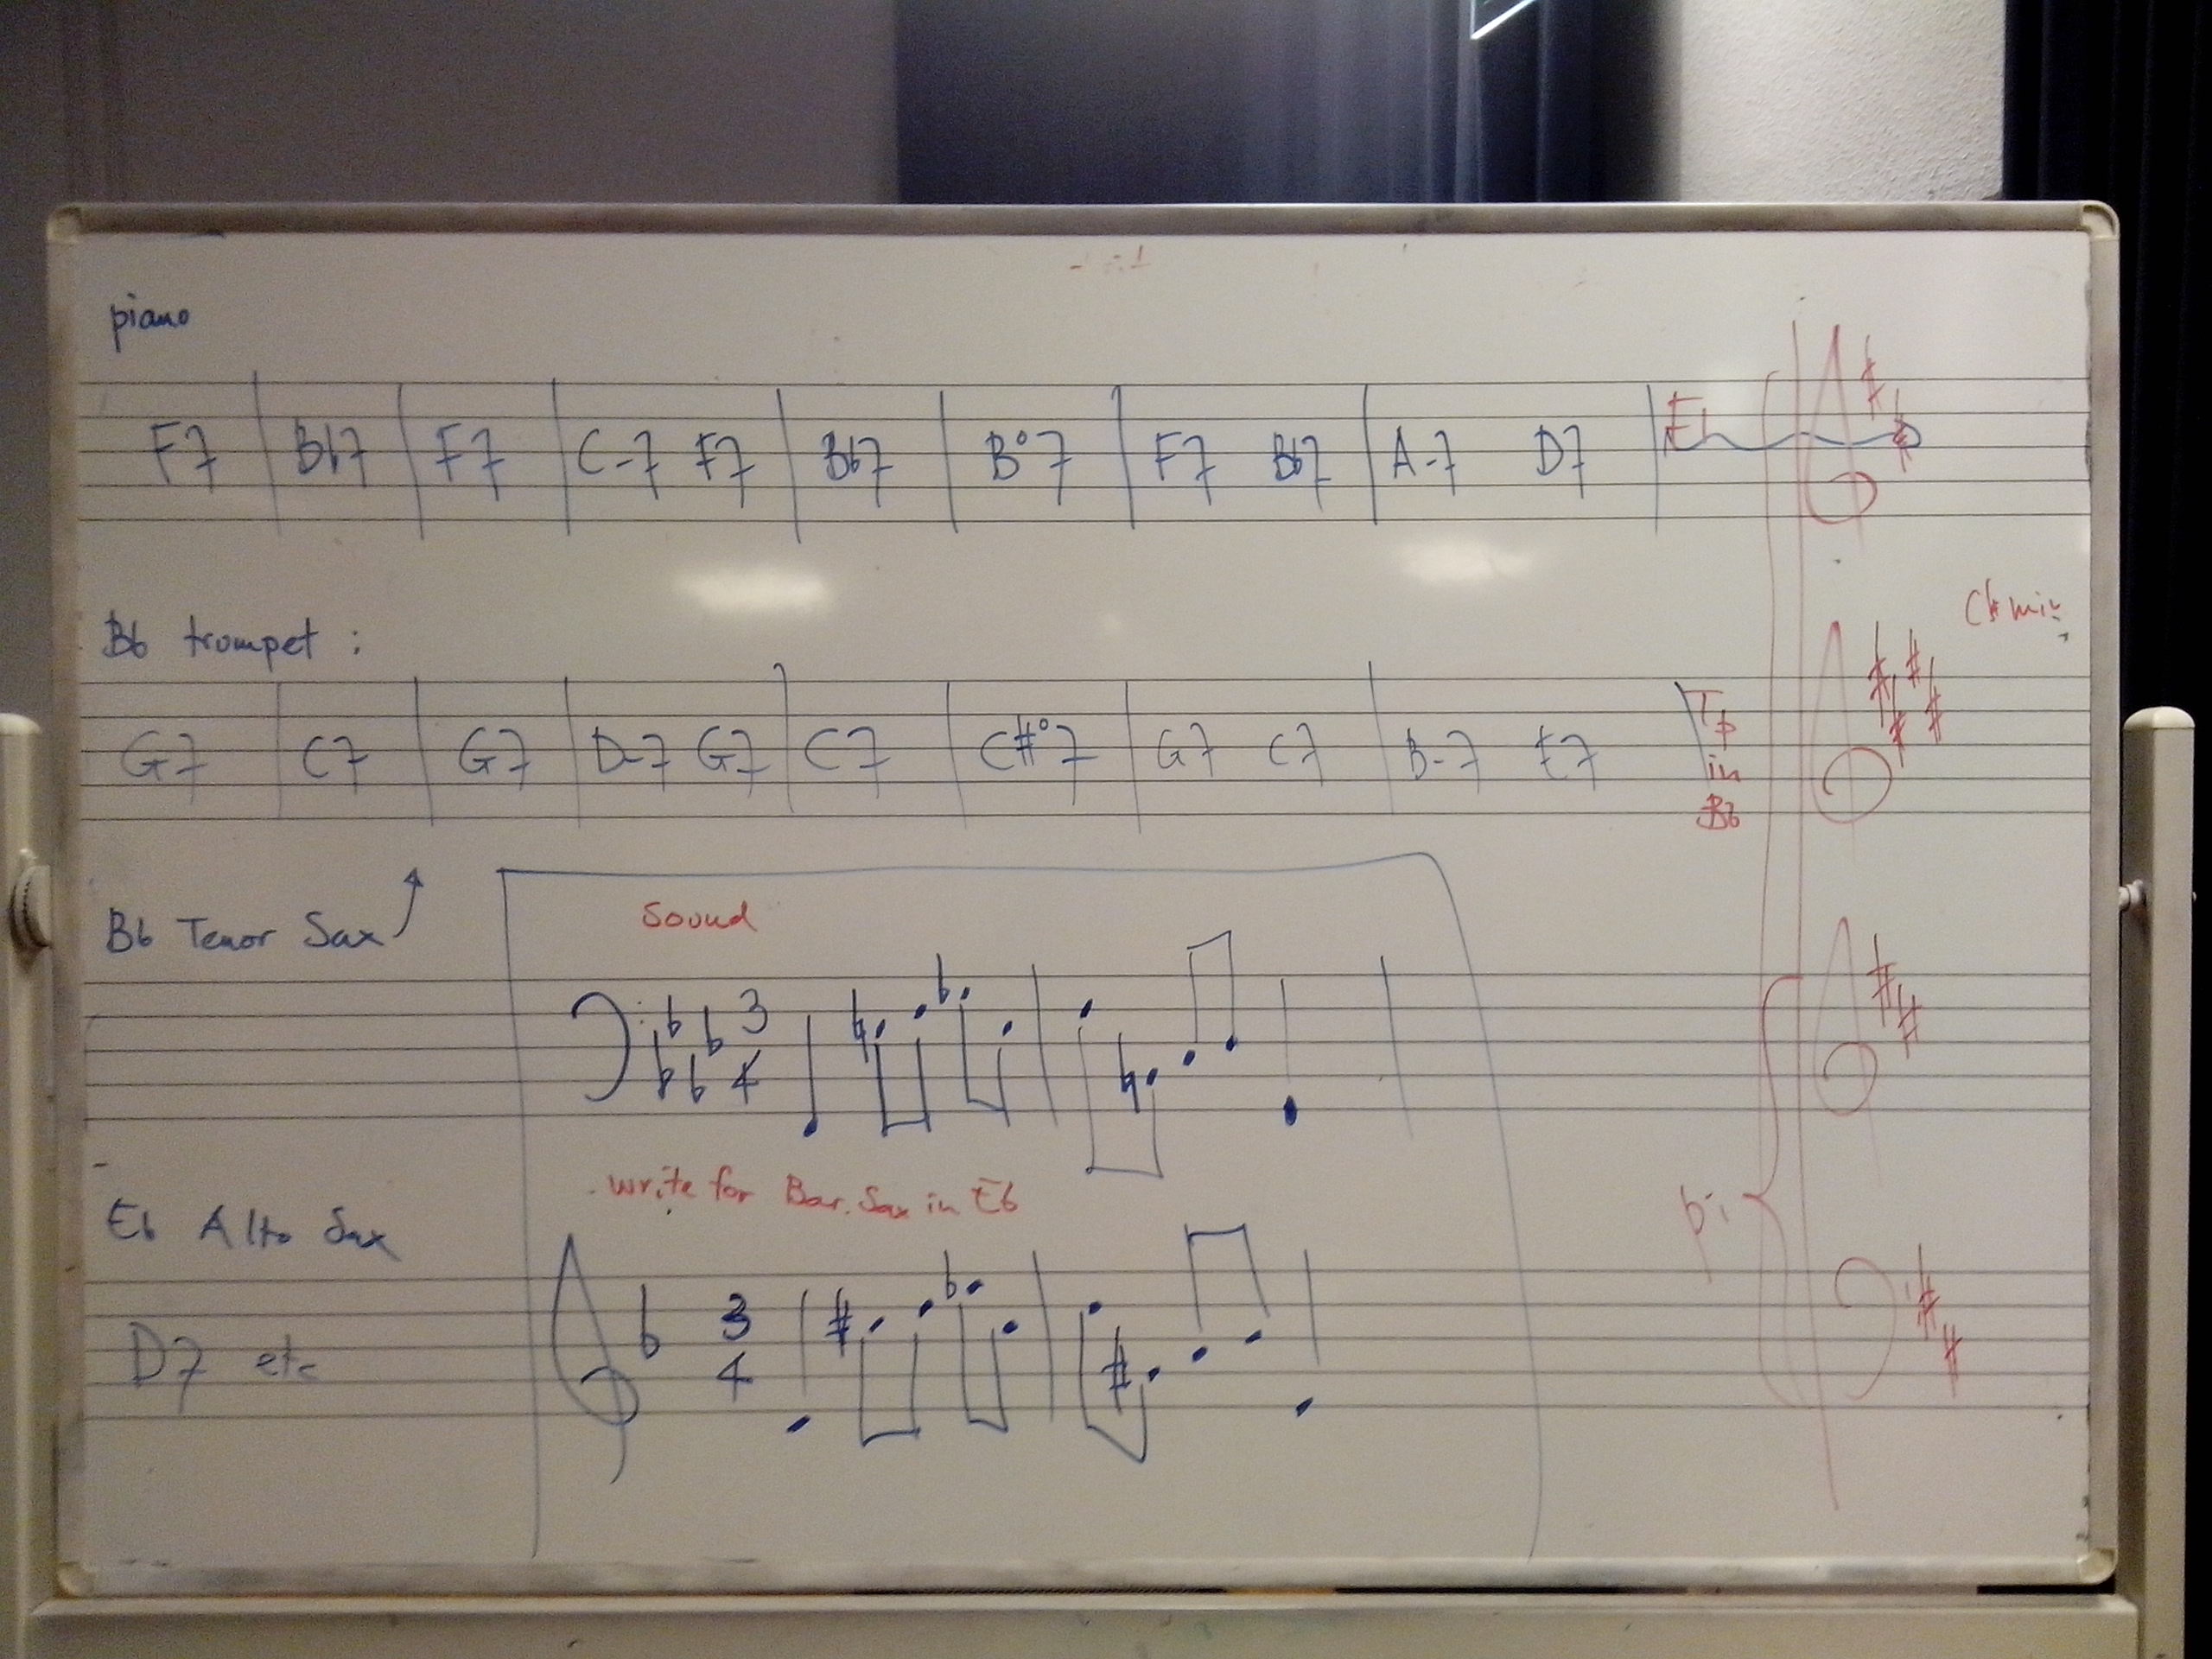 piano
F7 | Bb7 | F7 | C-7 F7 | Bb7 | B°7 | F7 Bb7 | A-7 D7 |
Eb
Bb trumpet :
G7 | C7 | G7 | D-7 G7 | C7 | C#°7 | G7 C7 | B-7 E7
Tp
in
Bb
C# min
Bb Tenor Sax
Sound
3
4
write for Bar. Sax in Eb
Eb Alto Sax
D7 etc
3
4